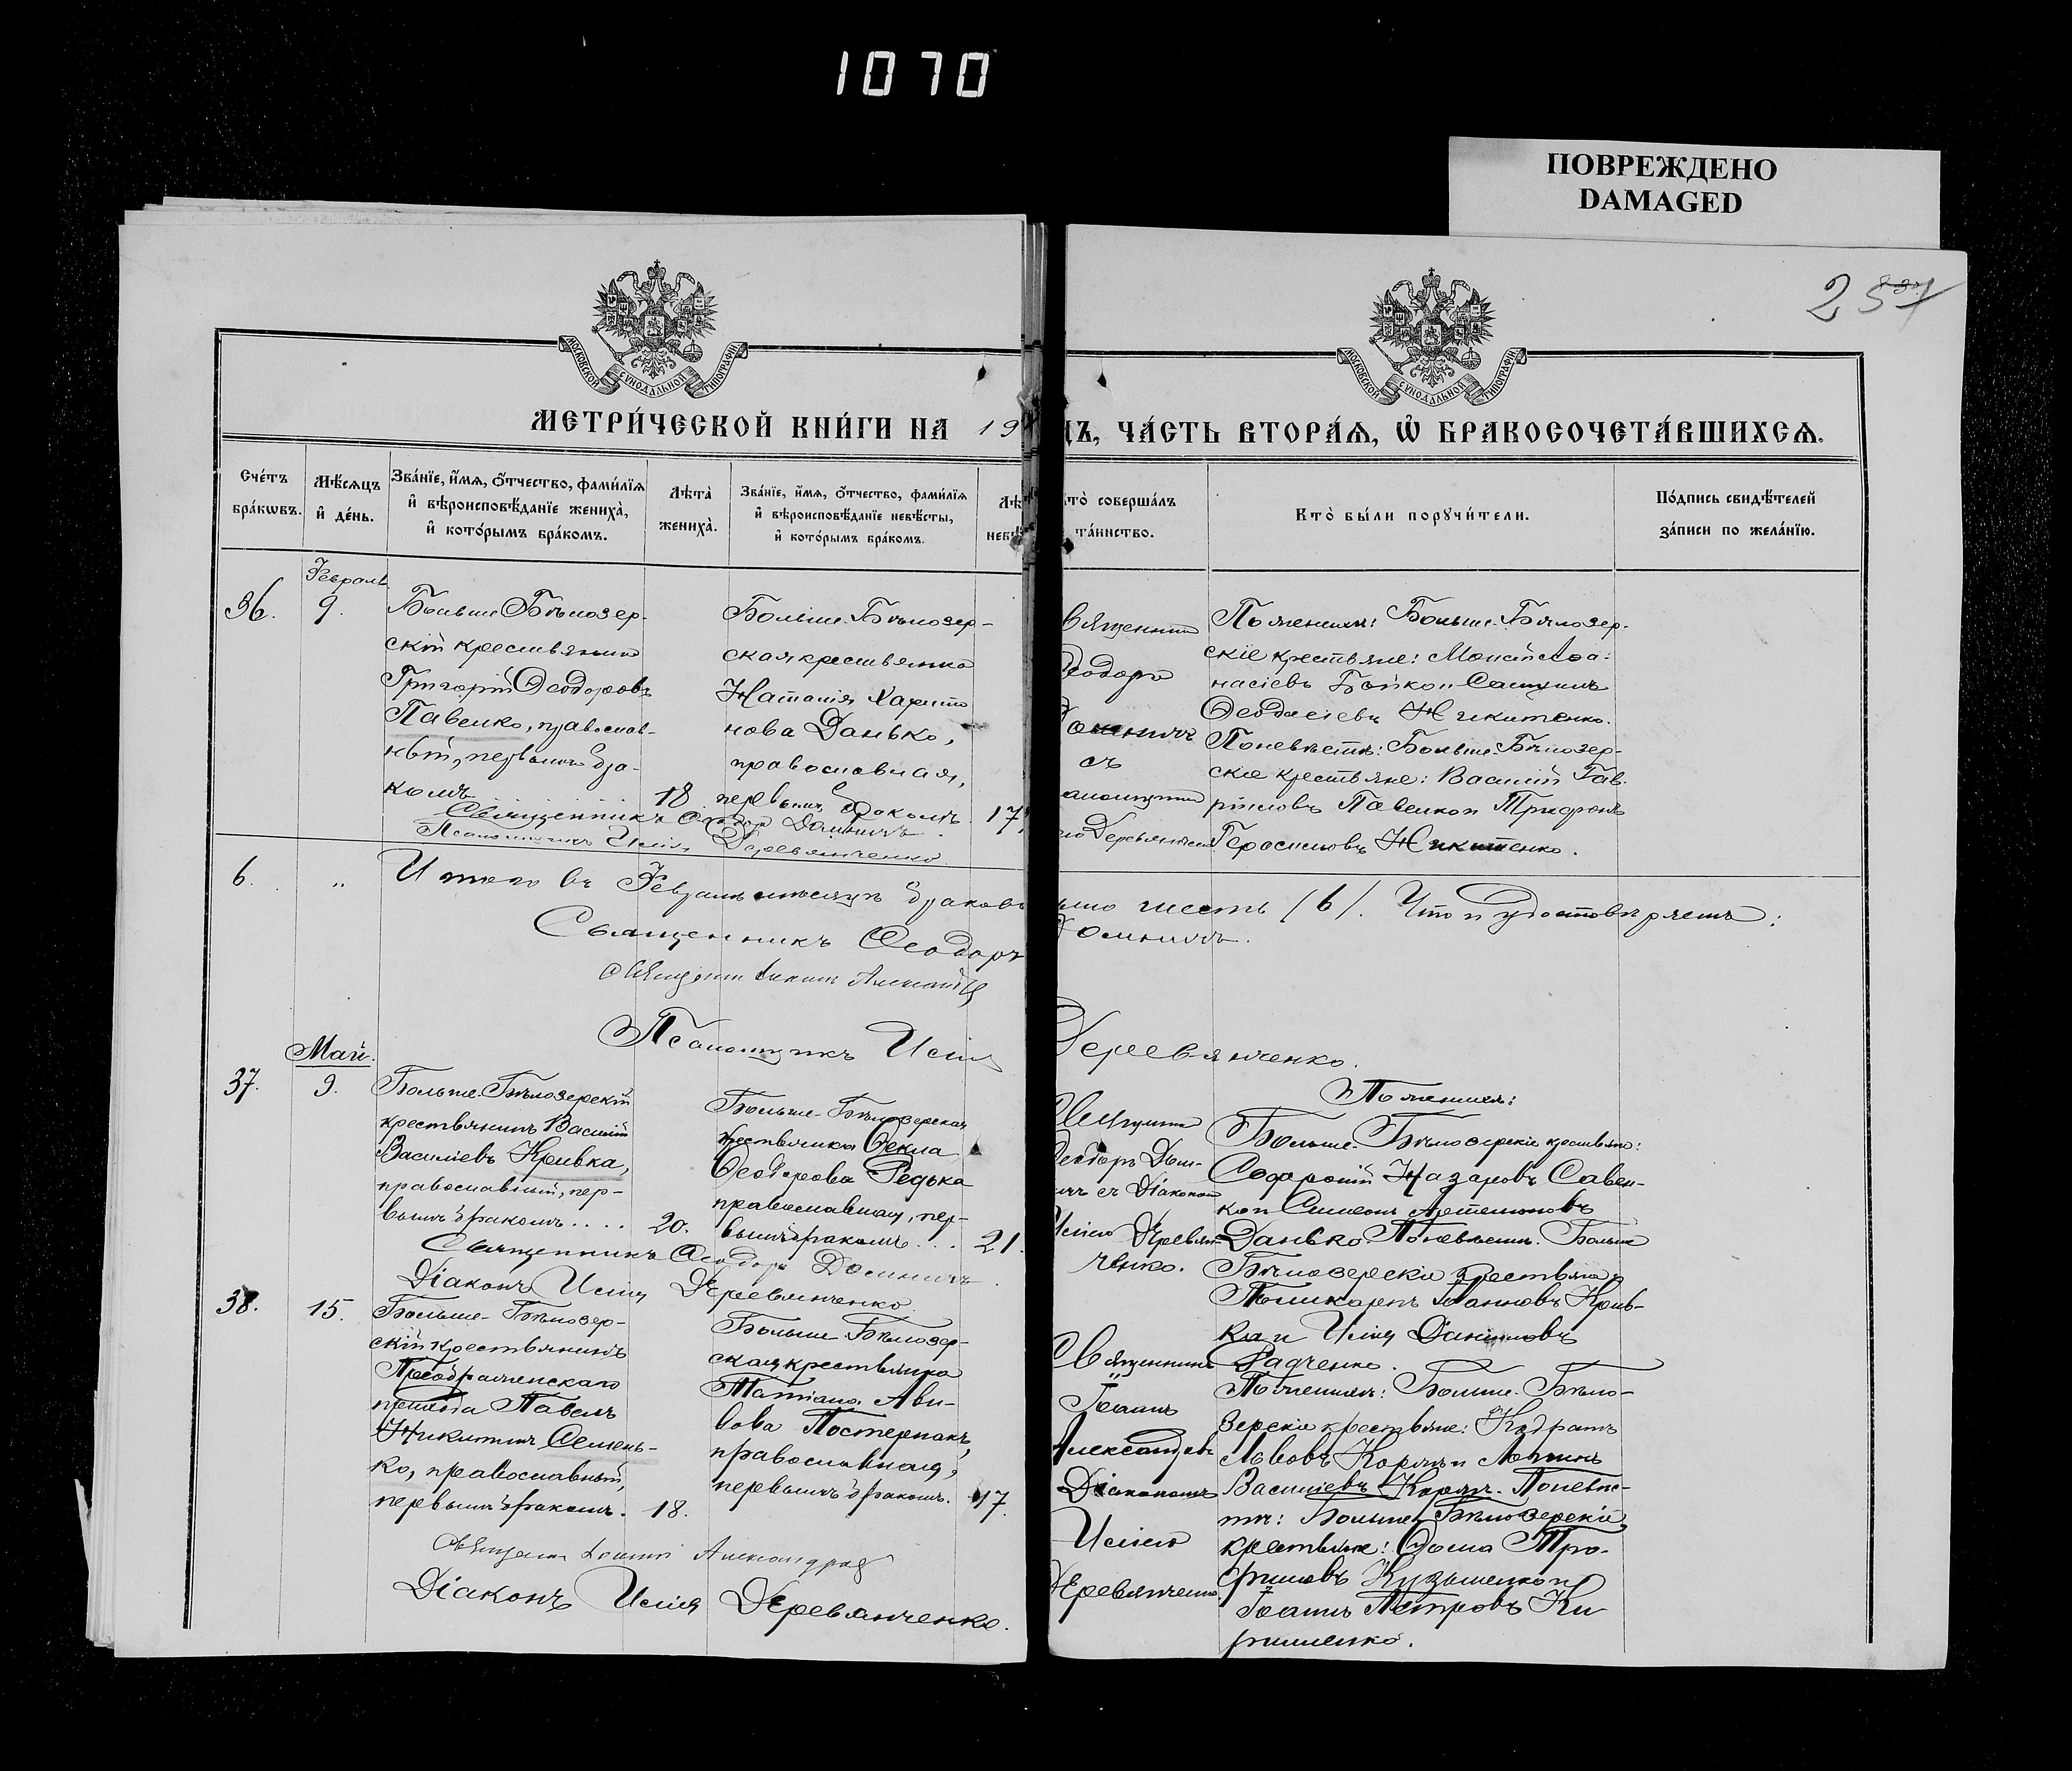 1070
ПОВРЕЖДЕНО
DAMAGED
257
МОСКОВСКОЙ СѴНОДАЛЬНОЙ ТИПОГРАФІИ
МОСКОВСКОЙ СѴНОДАЛЬНОЙ ТИПОГРАФІИ
МЕТРИ́ЧЕСКОЙ КНИ́ГИ НА 19
ДЪ, ЧА́СТЬ ВТОРА́Ѧ, Ѡ БРАКОСОЧЕТА́ВШИХСѦ.
Сче́тъ бра́кѡвъ.
Мѣ́сѧцъ и҆ де́нь.
Зва́нїе, и҆́мѧ, ѻ҆́тчество, фами́лїѧ
и҆ вѣроисповѣ́данїе жениха̀,
и҆ кото́рымъ бра́комъ.
Лѣта̀ жениха̀.
Зва́нїе, и҆́мѧ, ѻ҆́тчество, фами́лїѧ
и҆ вѣроисповѣ́данїе невѣ́сты,
и҆ кото́рымъ бра́комъ.
Лѣ
невѣ
кто̀ соверша́лъ
та́инство.
Кто̀ бы́ли порꙋчи́тели.
По́дпись свидѣ́телей
за́писи по жела́нїю.
Февраль
36.
9.
Больше Бѣлозер-
скій крестьянинъ
Григорій Ѳеодоровъ
Павенко, православ-
ный, первымъ бра-
комъ
18
Больше-Бѣлозер-
ская крестьянка
Наталія Харито
нова Данько,
православная,
первымъ бракомъ
17
Священникъ Ѳеодоръ
Псаломщикъ Илія Деревянченко
Священник
Ѳеодоръ
съ
По женихѣ: Больше-Бѣлозер-
скіе крестьяне: Моисей Аѳа-
насіевъ Бойко и Самуилъ
Ѳеодосіевъ Никитенко.
По невѣстѣ: Больше-Бѣлозер-
скіе крестьяне: Василій Гав-
ріиловъ Павенко и Трифонъ
Герасимовъ Никитенко.
6.
"
Итого въ Февралѣ мѣсяцѣ браковъ
было шесть (6). Что и удостовѣряемъ:
Священникъ Ѳеодоръ
Псаломщикъ Илія
Деревянченко.
Май.
37.
9.
Больше-Бѣлозерскій
крестьянинъ Василій
Василіевъ Кривка,
православный, пер-
вымъ бракомъ....
20.
Больше-Бѣлозерская
крестьянка Ѳекла
Ѳеодорова Редька
православная, пер-
вымъ бракомъ...
21.
Священникъ Ѳеодоръ
Діаконъ Илія Деревянченко.
съ Діакономъ
Иліею Деревян-
ченко.
По женихѣ:
Больше-Бѣлозерскіе крестьяне:
Софроній Назаровъ Савен-
ко и Симеонъ Артемоновъ
Данько. По невѣстѣ: Больше
Бѣлозерскіе крестьяне
Поликарпъ Іоанновъ Крив-
ка и Илія Даниловъ
Радченко.
38.
15.
Больше-Бѣлозер-
скій крестьянинъ
Преображенскаго
прихода Павелъ
Никитинъ Семень-
ко, православный,
первымъ бракомъ.
18.
Больше-Бѣлозер-
ская крестьянка
Татіана Ави-
вова Постернакъ,
православная,
первымъ бракомъ.
17.
Священникъ
Іоаннъ
Александровъ
Діакономъ
Иліею
Деревянченко
По женихѣ: Больше-Бѣло-
зерскіе крестьяне: Кодратъ
Львовъ Коржъ и Логинъ
Василіевъ Коржъ. По невѣс-
тѣ: Больше-Бѣлозерскіе
крестьяне: Ѳома Тро-
фимовъ Кузьменко и
Іоаннъ Петровъ Ки
риленко.
Діаконъ Илія Деревянченко.